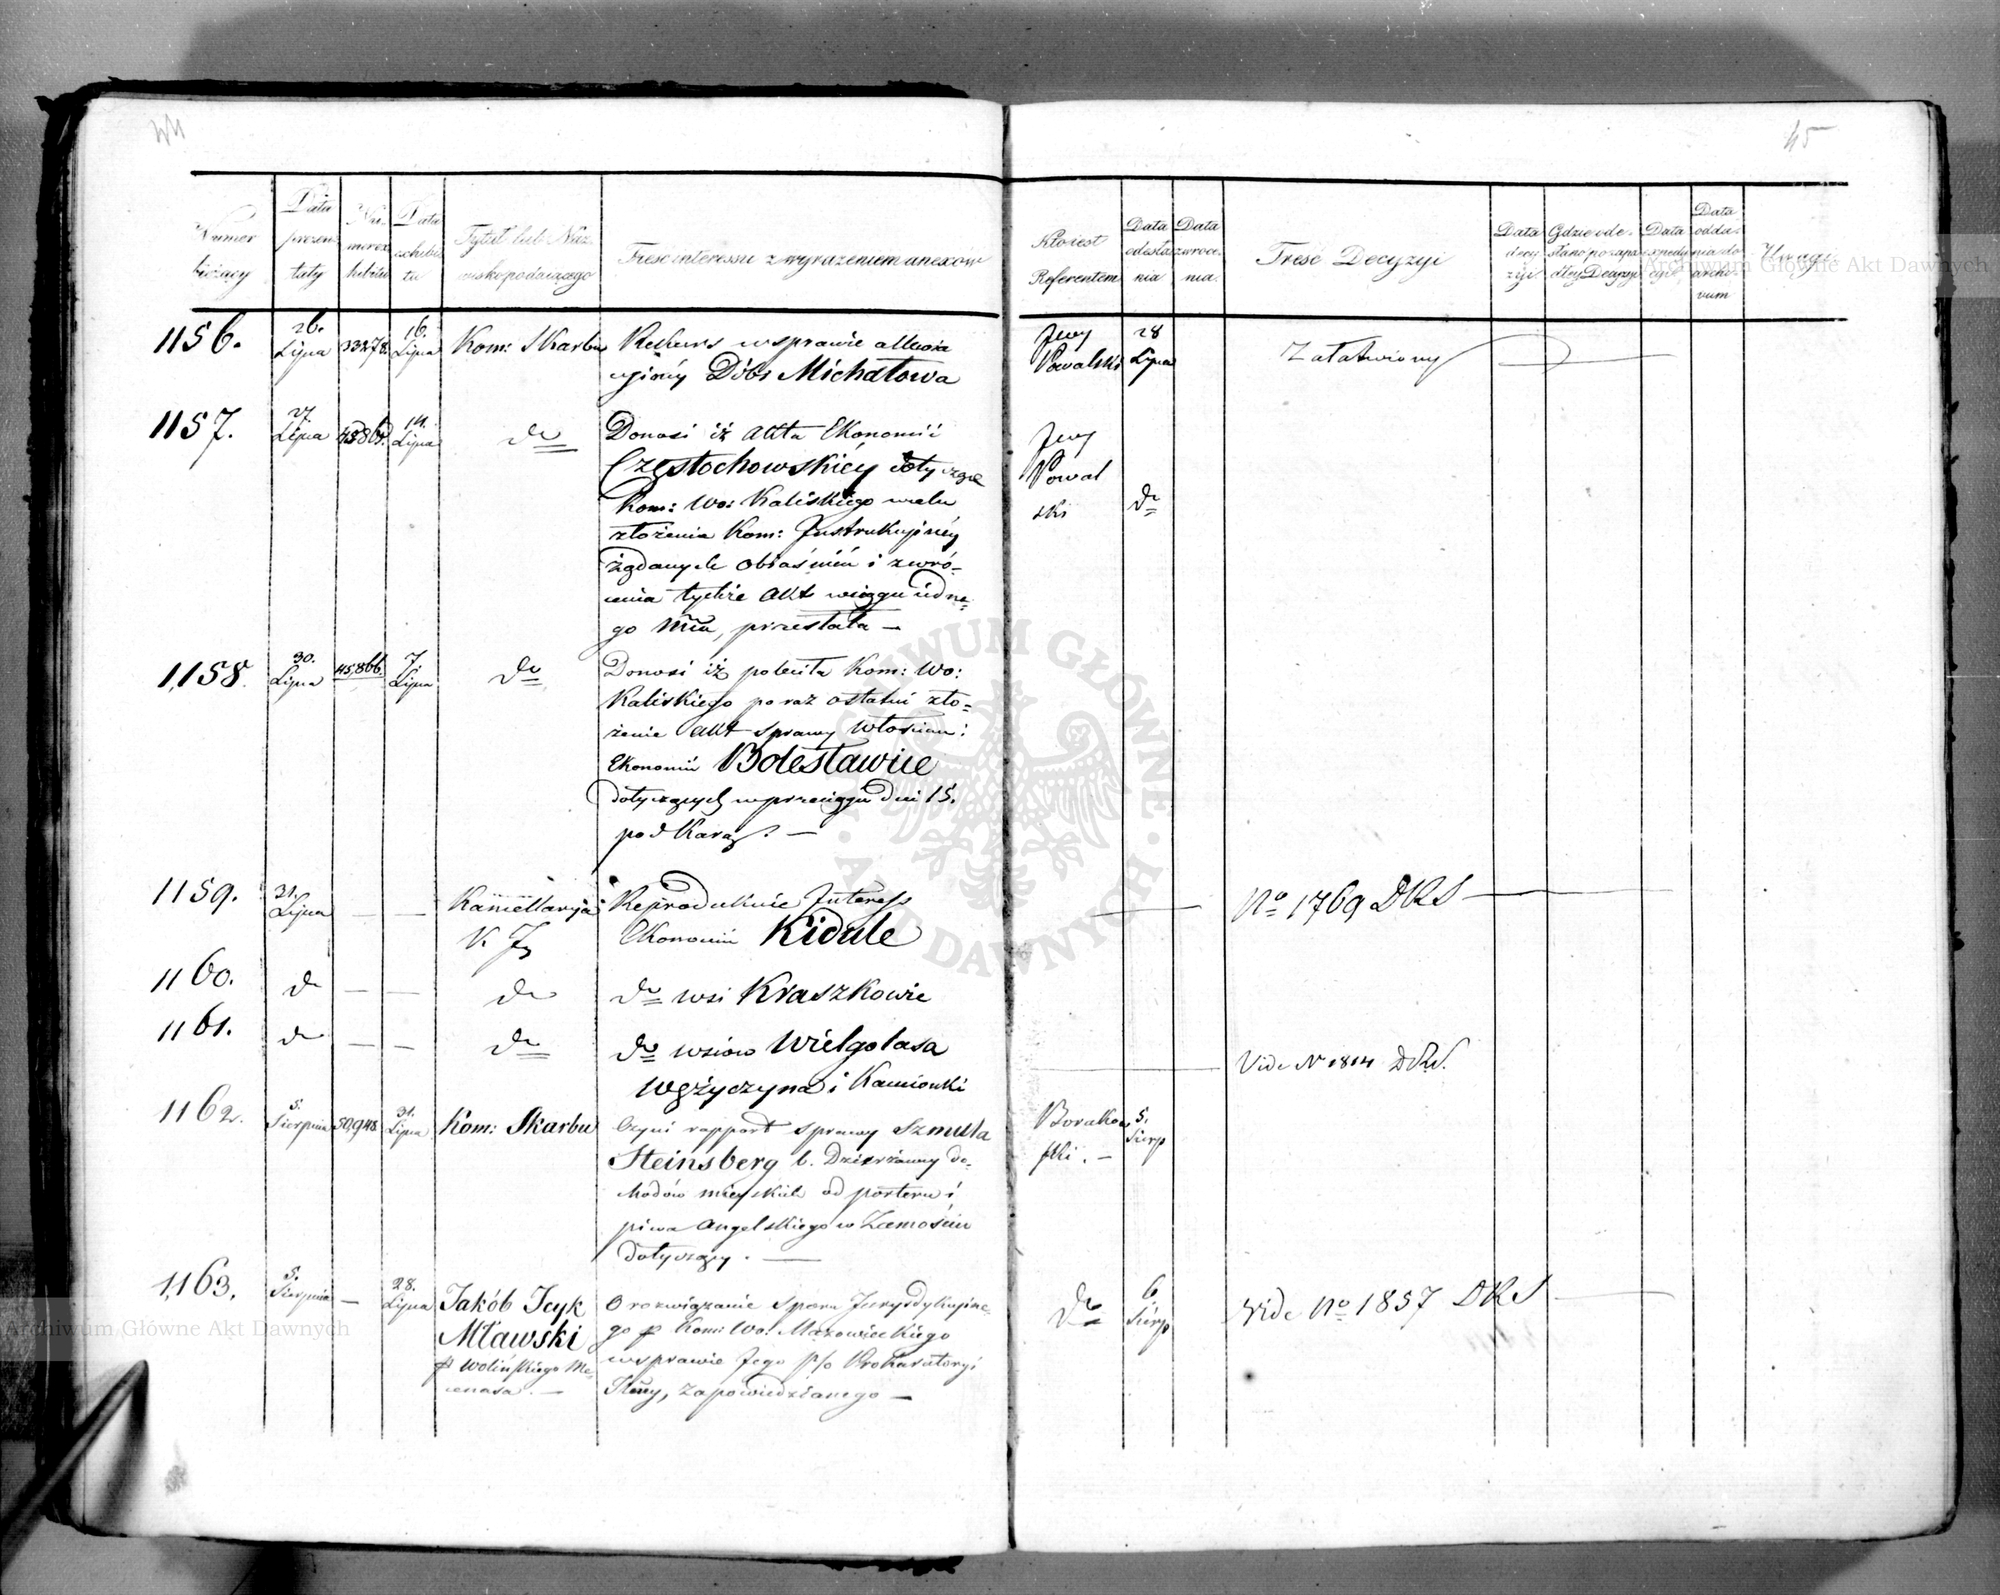 44
45
Numer bieżący
Data prezentaty
Numer exhibitu
Data exhibitu
Tytuł lub Nazwisko podaiącego
Treść interessu z wyrażeniem anexow
Kto iest Referentem
Data odesłania
Data zwrócenia
Treść Decyzyi
Data decyzyi
Data expedycyi
Data oddania do archivum
Uwagi
1156. 26. Lipca 33278. 16. Lipca Kom: Skarbu
Rekurs w sprawie
Dóbr Michałowa
28 Lipca
Załatwiony
1157. 27 Lipca 14. Lipca do
Donosi iż Akta Ekonomii
Częstochowskiéy dotyczące
Kom: Wo: Kaliskiego
złożenia Kom: Instrukcyinéy
żądanych obiaśnień i zwró-
cenia tychże Akt w ciągu iedne-
go Mca, przesłała —
Powal
ski do
1158. 30. Lipca 45,866. 7. Lipca do
Donosi iż poleciła Kom: Wo:
Kaliskiego po raz ostatni zło-
żenie Akt sprawy Włościan:
Ekonomii Bolesławice
dotyczących w przeciągu dni 15.
pod Karą. —
1159. 31. Lipca — — Kancellaryia
Reprodukcie Interess
Ekonomii Kidule
No 1769 DKS
1160. do — — do
do wsi Kraszkowie
1161. do — — do
do wsiow Wielgolasa
Wężyczyna i Kamionki
Vide No 1814 DKS.
1162. 5. Sierpnia 50,948. 31. Lipca Kom: Skarbu
Czyni rapport sprawy Szmula
Steinsberg b. Dzierżawcy do-
chodów mieyskich od porteru i
piwa Angelskiego w Zamościu
dotyczący. —
Borakow
ski. —
5. Sierp
1163. 5. Sierpnia — 28. Lipca
Jakób Icyk
Mławski
p Wolińskiego Me-
cenasa. —
O rozwiązanie sporu Jurysdykcyine-
go p Kom: Wo: Mazowieckiego
w sprawie Jego p/o Prokuratoryi
Jlney, zapowiedzianego —
do 6 Sierp
Vide No 1857 DKS
ARCHIWUM GŁÓWNE AKT DAWNYCH
Archiwum Główne Akt Dawnych
Archiwum Główne Akt Dawnych